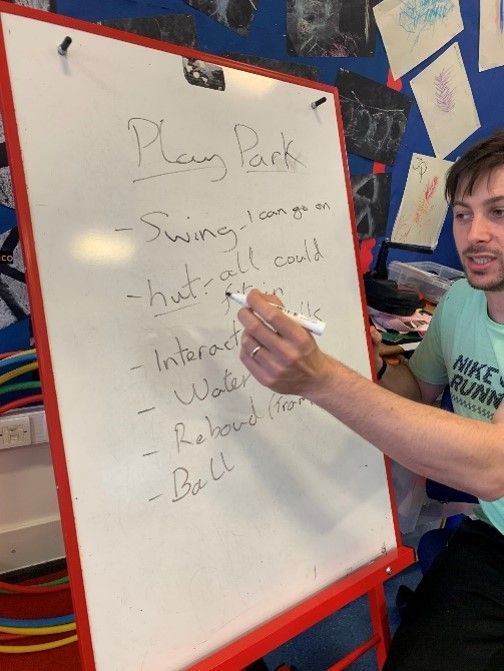 Play Park
- Swing - I can go on
- hut - all could
fit in
- Interact
- Water
- Reboud (Tram
- Ball
NIKE
RUNN